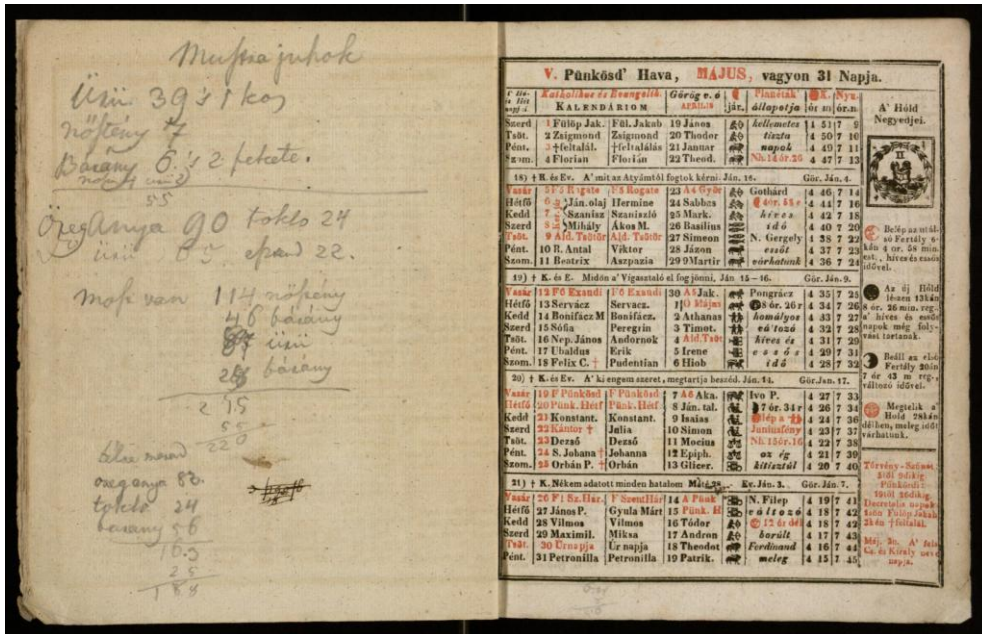 Muszra juhok
Ürü 39 's 1 kos
nőstény 7
Bárány 6. 's 2 fekete.
55
Öreg Anya 90 toklo 24
ürü 65 22.
most van 114 nőstény
46 bárány
ürü
bárány
55
220
öreganya 83.
toklo 24
bárány 56
25
188
V. Pünkösd' Hava, MÁJUS, vagyon 31 Napja.
Katholikus és Evangelik. Görög v. ó Planéták Nyu.
KALENDÁRIOM APRILIS jár. állapotja ór m ór m
Szerd 1 Fülöp Jak. Fül. Jakab 19 János kellemetes 4 51 7 9
Tsöt. 2 Zsigmond Zsigmond 20 Thodor tiszta 4 50 7 10
Pént. 3 †feltalál. †feltalálás 21 Januar napok 4 49 7 11
Szom. 4 Florian Florián 22 Theod. Nh. 14 ór. 26 4 47 7 13
18) † R. és Ev. A' mit az Atyámtól fogtok kérni. Ján. 16. Gör. Ján. 4.
Vasár 5 F5 Rogate F5 Rogate 23 A4 Győr Gothárd 4 46 7 14
Hétfő 6 Ján. olaj Hermine 24 Sabbas 4 44 7 16
Kedd 7 Szanisz Szaniszló 25 Mark. híves 4 42 7 18
Szerd 8 Mihály Ákos M. 26 Basilius idő 4 40 7 20
Tsöt. 9 Áld. Tsötör Áld. Tsötör 27 Simeon N. Gergely 4 38 7 22
Pént. 10 R. Antal Viktor 28 Jázon essőt 4 37 7 23
Szom. 11 Beatrix Aszpazia 29 9Martir várhatunk 4 36 7 24
19) † K. és E. Midőn a' Vígasztaló el fog jönni, Ján 15—16. Gör. Ján. 9.
Vasár 12 F6 Exaudi F6 Exaudi 30 A5 Jak. Pongrácz 4 35 7 25
Hétfő 13 Servácz Servacz. 1 O Május 8 ór. 26 r 4 34 7 26
Kedd 14 Bonifácz M Bonifácz. 2 Athanas homályos 4 33 7 27
Szerd 15 Sófia Peregrin 3 Timot. változó 4 32 7 28
Tsöt. 16 Nep. János Andornok 4 Áld. Tsöt híves és 4 31 7 29
Pént. 17 Ubaldus Erik 5 Irene essős 4 29 7 31
Szom. 18 Felix C. † Pudentian 6 Hiob idő 4 28 7 32
20) † K. és Ev. A' ki engem szeret, megtartja beszéd. Ján. 14. Gör. Jan. 17.
Vasár 19 F Pünkösd F Pünkösd 7 A6 Aka. Ivo P. 4 27 7 33
Hétfő 20 Pünk. Hétf Pünk. Hétf 8 Ján. tal. 7 ór. 34 r 4 26 7 34
Kedd 21 Konstant. Konstant. 9 Isaias 4 24 7 36
Szerd 22 Kántor † Julia 10 Simon Juniusfény 4 23 7 37
Tsöt. 23 Dezső Dezső 11 Mocius Nh. 15 ór. 16 4 22 7 38
Pént. 24 S. Johana † Johanna 12 Epiph. az ég 4 21 7 39
Szom. 25 Orbán P. † Orbán 13 Glicer. kitisztúl 4 20 7 40
21) † K. Nékem adatott minden hatalom Máté 28. Ev. Ján. 3. Gör. Ján. 7.
Vasár 26 F1 Sz. Hár. F Szent Hár 14 A Pünk N. Filep 4 19 7 41
Hétfő 27 János P. Gyula Márt 15 Pünk. H változó 4 18 7 42
Kedd 28 Vilmos Vilmos 16 Tódor 12 ór dél 4 18 7 42
Szerd 29 Maximil. Miksa 17 Andron borúlt 4 17 7 43
Tsöt. 30 Úrnapja Úr napja 18 Theodot Ferdinand 4 16 7 44
Pént. 31 Petronilla Petronilla 19 Patrik. meleg 4 15 7 45
A' Hóld
Negyedjei.
II
Belép az utól-
só Fertály 6-
kán 4 ór. 58 min.
est., híves és essős
idővel.
Az új Hóld
lészen 13kán
8 ór. 26 min. reg.,
a' híves és essős
napok még foly-
vást tartanak.
Beáll az első
Fertály 20án
7 ór 43 m reg.,
változó idővel.
Megtelik a'
Hold 28kán
délben, meleg időt
várhatunk.
Törvény-Szünet
5től 9dikig.
Pünkösdi
19től 26dikig.
Decretalis napok
1sőn Fülöp Jakab
3kán †feltalál.
Máj. 30. A' fels.
Cs. és Király neve
napja.